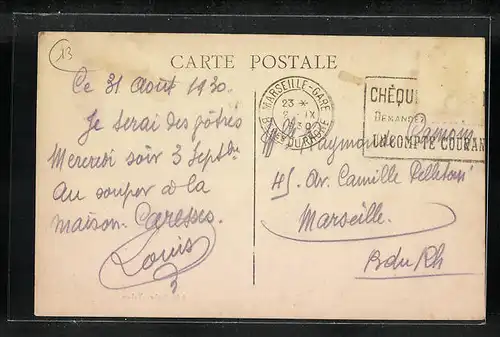 13
CARTE POSTALE
Ce 31 Août 1930.
Je serai des vôtres
Mercredi soir 3 Septbre
au souper à la
maison. Caresses.
Louis
MARSEILLE-GARE
23 *
IX
30
B. DU RHONE
CHÈQU
DEMANDEZ
UN COMPTE COURAN
Raymonde
45. Av. Camille Pelletan
Marseille.
B du Rh